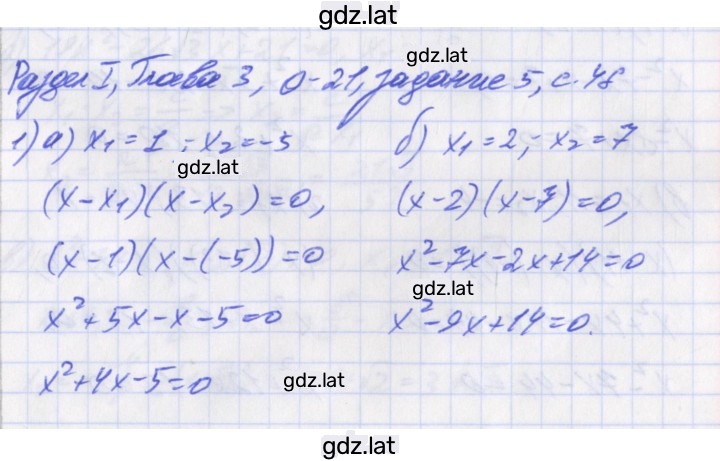 gdz.lat
gdz.lat
Раздел I, Глава 3, О-21, задание 5, с. 48
1) а) x₁ = 1 ; x₂ = -5
б) x₁ = 2; x₂ = 7
gdz.lat
(x - x₁)(x - x₂) = 0,
(x - 2)(x - 7) = 0,
(x - 1)(x - (-5)) = 0
x² - 7x - 2x + 14 = 0
gdz.lat
x² + 5x - x - 5 = 0
x² - 9x + 14 = 0.
x² + 4x - 5 = 0
gdz.lat
gdz.lat